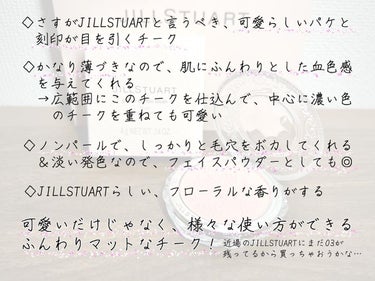 JILLSTUART
◇さすがJILLSTUARTと言うべき、可愛らしいパケと
刻印が目を引くチーク
◇かなり薄づきなので、肌にふんわりとした血色感
を与えてくれる
→広範囲にこのチークを仕込んで、中心に濃い色
のチークを重ねても可愛い
◇ノンパールで、しっかりと毛穴をボカしてくれる
＆淡い発色なので、フェイスパウダーとしても◎
◇JILLSTUARTらしい、フローラルな香りがする
可愛いだけじゃなく、様々な使い方ができる
ふんわりマットなチーク！
近場のJILLSTUARTにまだ03が
残ってるから買っちゃおうかな…